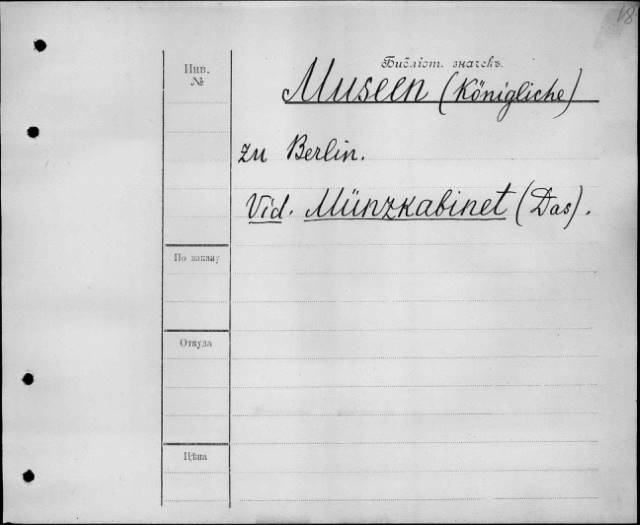 18
Библіот. значекъ.
Инв.
№
Museen (Königliche)
zu Berlin.
Vid. Münzkabinet (Das).
По заказу
Откуда
Цѣна